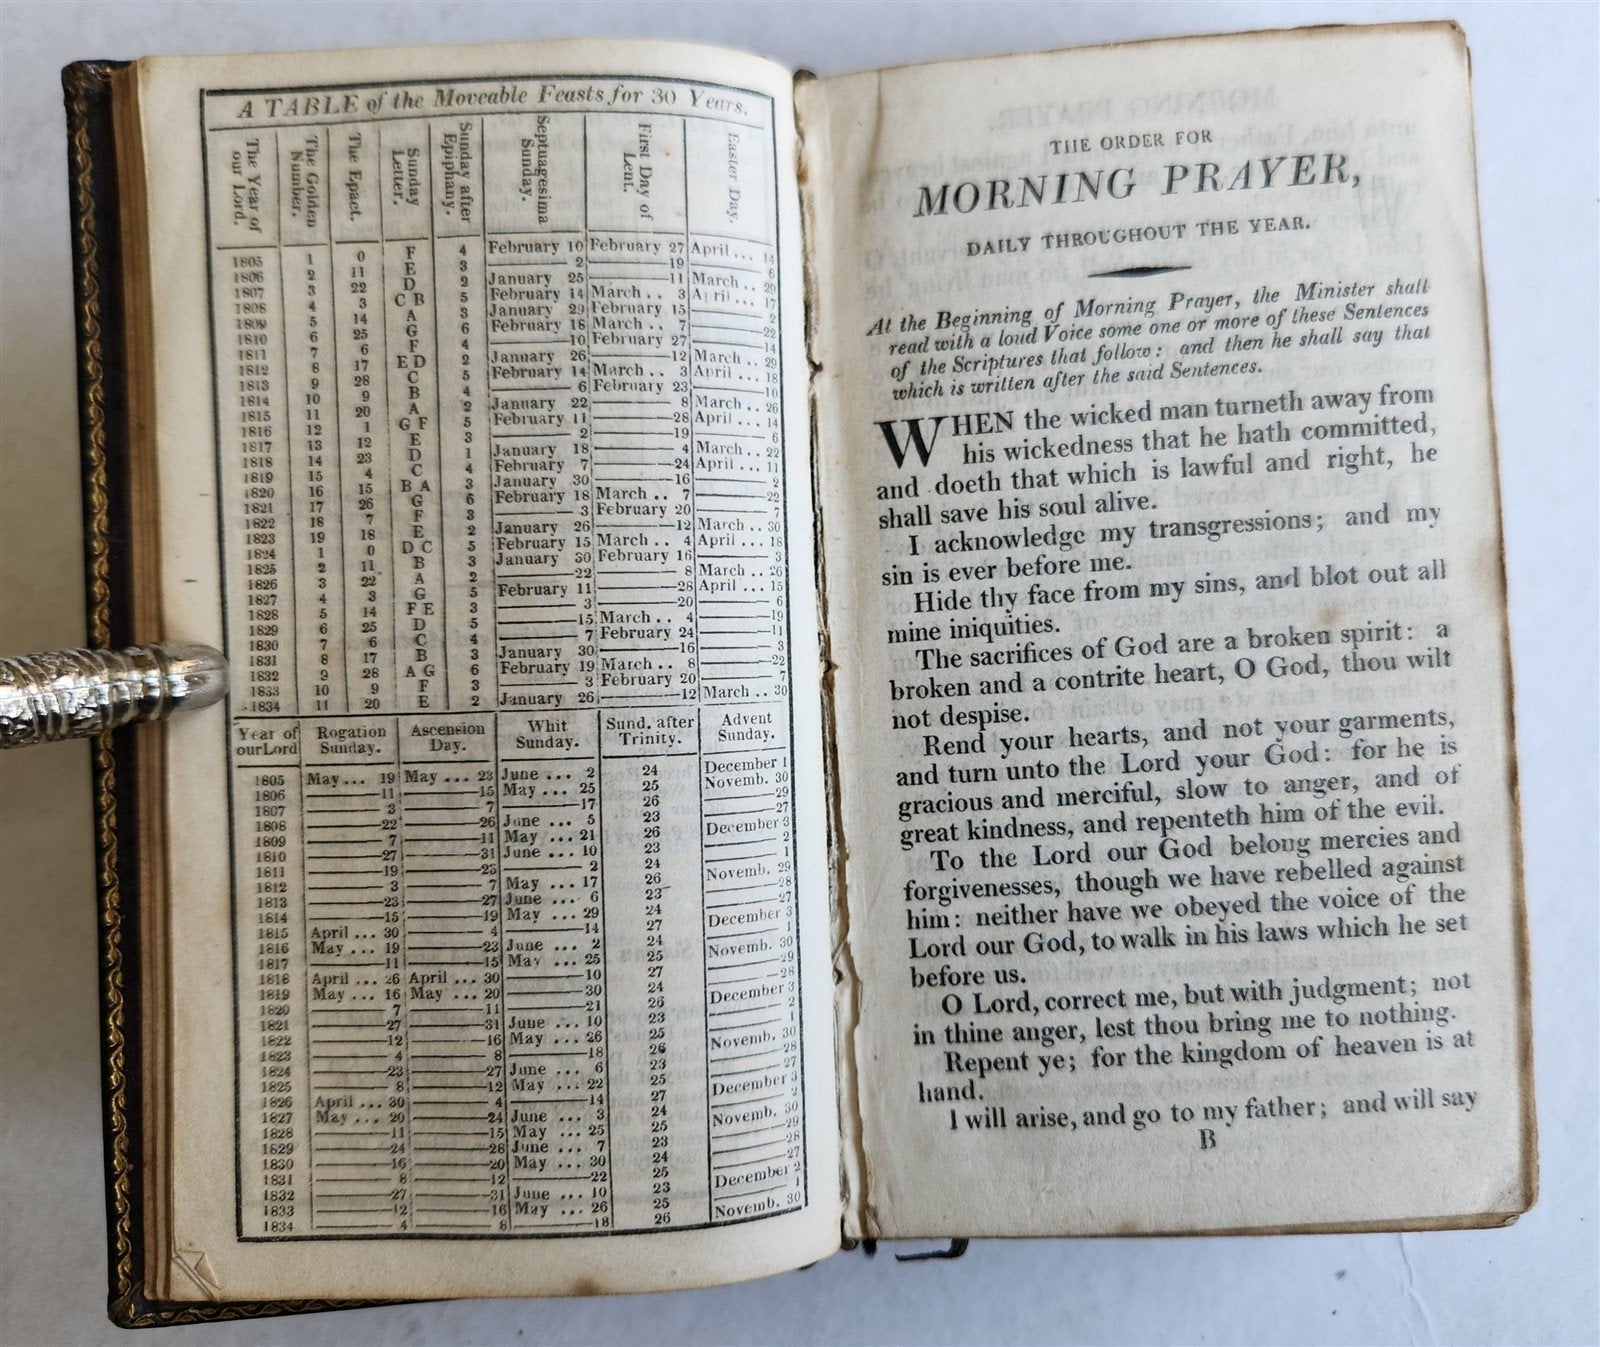 A TABLE of the Moveable Feasts for 30 Years.
The Year of our Lord. The Golden Number. The Epact. Sunday Letter. Sunday after Epiphany. Septuagesima Sunday. First Day of Lent. Easter Day.
1805 1 0 F 4 February 10 February 27 April ... 14
1806 2 11 E 3 —— 2 —— 19 —— 6
1807 3 22 D 2 January 25 —— 11 March .. 29
1808 4 3 C B 5 February 14 March .. 3 April ... 17
1809 5 14 A 3 January 29 February 15 —— 2
1810 6 25 G 6 February 18 March .. 7 —— 22
1811 7 6 F 4 —— 10 February 27 —— 14
1812 8 17 E D 2 January 26 —— 12 March .. 29
1813 9 28 C 5 February 14 March .. 3 April ... 18
1814 10 9 B 4 —— 6 February 23 —— 10
1815 11 20 A 2 January 22 —— 8 March .. 26
1816 12 1 G F 5 February 11 —— 28 April ... 14
1817 13 12 E 3 —— 2 —— 19 —— 6
1818 14 23 D 1 January 18 —— 4 March .. 22
1819 15 4 C 4 February 7 —— 24 April ... 11
1820 16 15 B A 3 January 30 —— 16 —— 2
1821 17 26 G 6 February 18 March .. 7 —— 22
1822 18 7 F 3 —— 3 February 20 —— 7
1823 19 18 E 2 January 26 —— 12 March .. 30
1824 1 0 D C 5 February 15 March .. 4 April ... 18
1825 2 11 B 3 January 30 February 16 —— 3
1826 3 22 A 2 —— 22 —— 8 March .. 26
1827 4 3 G 5 February 11 —— 28 April ... 15
1828 5 14 F E 3 —— 3 —— 20 —— 6
1829 6 25 D 5 —— 15 March .. 4 —— 19
1830 7 6 C 4 —— 7 February 24 —— 11
1831 8 17 B 3 January 30 —— 16 —— 3
1832 9 28 A G 6 February 19 March .. 8 —— 22
1833 10 9 F 3 —— 3 February 20 —— 7
1834 11 20 E 2 January 26 —— 12 March .. 30
Year of our Lord Rogation Sunday. Ascension Day. Whit Sunday. Sund. after Trinity. Advent Sunday.
1805 May ... 19 May ... 23 June ... 2 24 December 1
1806 —— 11 —— 15 May ... 25 25 Novemb. 30
1807 —— 3 —— 7 —— 17 26 —— 29
1808 —— 22 —— 26 June ... 5 23 —— 27
1809 —— 7 —— 11 May ... 21 26 December 3
1810 —— 27 —— 31 June ... 10 23 —— 2
1811 —— 19 —— 23 —— 2 24 —— 1
1812 —— 3 —— 7 May ... 17 26 Novemb. 29
1813 —— 23 —— 27 June ... 6 23 —— 28
1814 —— 15 —— 19 May ... 29 24 —— 27
1815 April ... 30 —— 4 —— 14 27 December 3
1816 May ... 19 —— 23 June ... 2 24 —— 1
1817 —— 11 —— 15 May ... 25 25 Novemb. 30
1818 April ... 26 April ... 30 —— 10 27 —— 29
1819 May ... 16 May ... 20 —— 30 24 —— 28
1820 —— 7 —— 11 —— 21 26 December 3
1821 —— 27 —— 31 June ... 10 23 —— 2
1822 —— 12 —— 16 May ... 26 25 —— 1
1823 —— 4 —— 8 —— 18 26 Novemb. 30
1824 —— 23 —— 27 June ... 6 23 —— 28
1825 —— 8 —— 12 May ... 22 25 —— 27
1826 April ... 30 —— 4 —— 14 27 December 3
1827 May ... 20 —— 24 June ... 3 24 —— 2
1828 —— 11 —— 15 May ... 25 25 Novemb. 30
1829 —— 24 —— 28 June ... 7 23 —— 29
1830 —— 16 —— 20 May ... 30 24 —— 28
1831 —— 8 —— 12 —— 22 25 —— 27
1832 —— 27 —— 31 June ... 10 23 December 2
1833 —— 12 —— 16 May ... 26 25 —— 1
1834 —— 4 —— 8 —— 18 26 Novemb. 30
THE ORDER FOR
MORNING PRAYER,
DAILY THROUGHOUT THE YEAR.
At the Beginning of Morning Prayer, the Minister shall
read with a loud Voice some one or more of these Sentences
of the Scriptures that follow: and then he shall say that
which is written after the said Sentences.
WHEN the wicked man turneth away from
his wickedness that he hath committed,
and doeth that which is lawful and right, he
shall save his soul alive.
I acknowledge my transgressions; and my
sin is ever before me.
Hide thy face from my sins, and blot out all
mine iniquities.
The sacrifices of God are a broken spirit: a
broken and a contrite heart, O God, thou wilt
not despise.
Rend your hearts, and not your garments,
and turn unto the Lord your God: for he is
gracious and merciful, slow to anger, and of
great kindness, and repenteth him of the evil.
To the Lord our God belong mercies and
forgivenesses, though we have rebelled against
him: neither have we obeyed the voice of the
Lord our God, to walk in his laws which he set
before us.
O Lord, correct me, but with judgment; not
in thine anger, lest thou bring me to nothing.
Repent ye; for the kingdom of heaven is at
hand.
I will arise, and go to my father; and will say
B